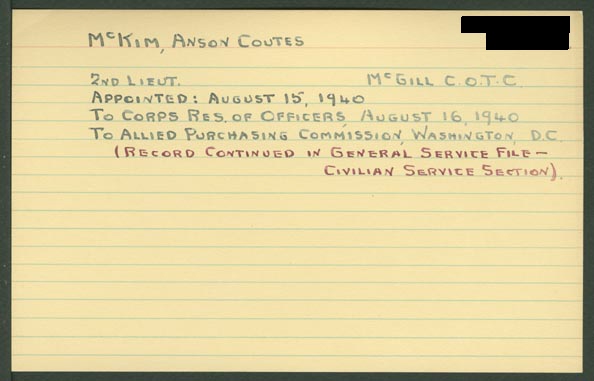 McKIM, ANSON COUTES
2ND LIEUT. McGILL C.O.T.C.
APPOINTED: AUGUST 15, 1940
TO CORPS RES. OF OFFICERS, AUGUST 16, 1940
TO ALLIED PURCHASING COMMISSION, WASHINGTON, D.C.
(RECORD CONTINUED IN GENERAL SERVICE FILE—
CIVILIAN SERVICE SECTION).